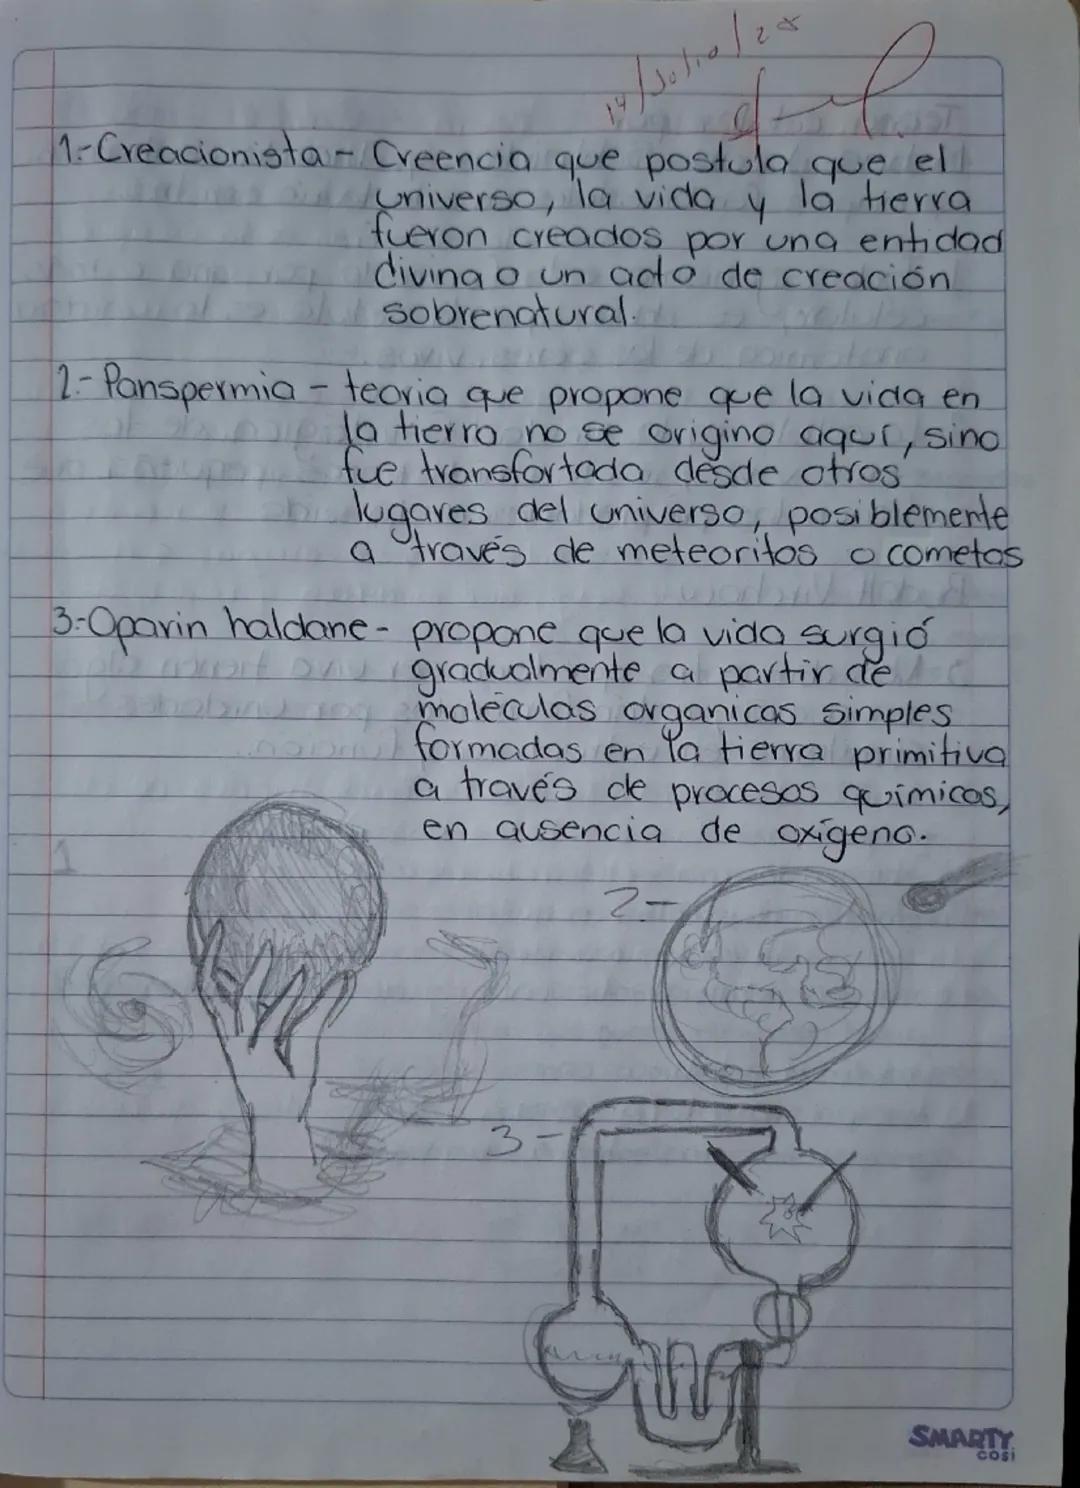 14/Julio/25
1.-Creacionista - Creencia que postula que el
universo, la vida y la tierra
fueron creados por una entidad
divina o un acto de creación
sobrenatural.
2.- Panspermia - teoria que propone que la vida en
la tierra no se origino aquí, sino
fue transfortada desde otros
lugares del universo, posiblemente
a través de meteoritos o cometas
3.-Oparin haldane - propone que la vida surgió
gradualmente a partir de
moléculas organicas simples
formadas en la tierra primitiva
a través de procesos químicos,
en ausencia de oxígeno.
1
2-
3-
SMARTY
cosi